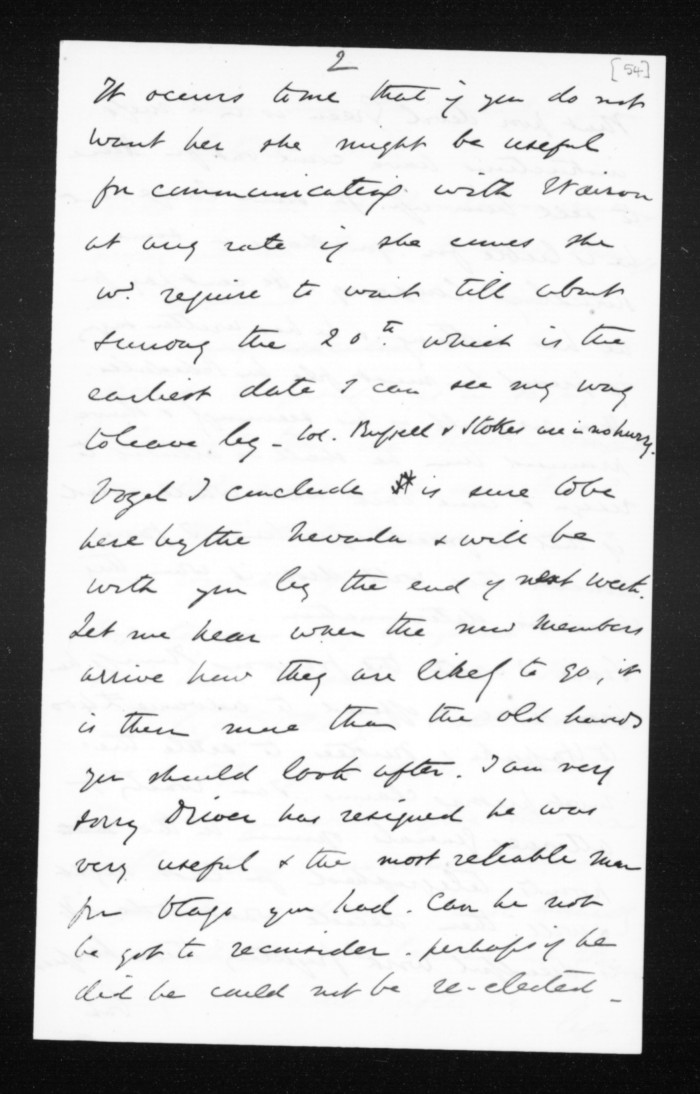 2
[54]
It occurs to me that if you do not
want her she might be useful
for communicating with
at any rate if she comes she
wd. require to wait till about
the 20th. which is the
earliest date I can see my way
to leave by - Col. Russell & Stokes are in no hurry.
Vogel I conclude is sure to be
here by the Nevada & will be
with you by the end of next week.
Let me hear when the new Members
arrive how they are likely to go, it
is them more than the old hands
you should look after. I am very
sorry Driver has resigned he was
very useful & the most reliable man
for Otago you had. Can he not
be got to reconsider. perhaps if he
did he could not be re-elected -